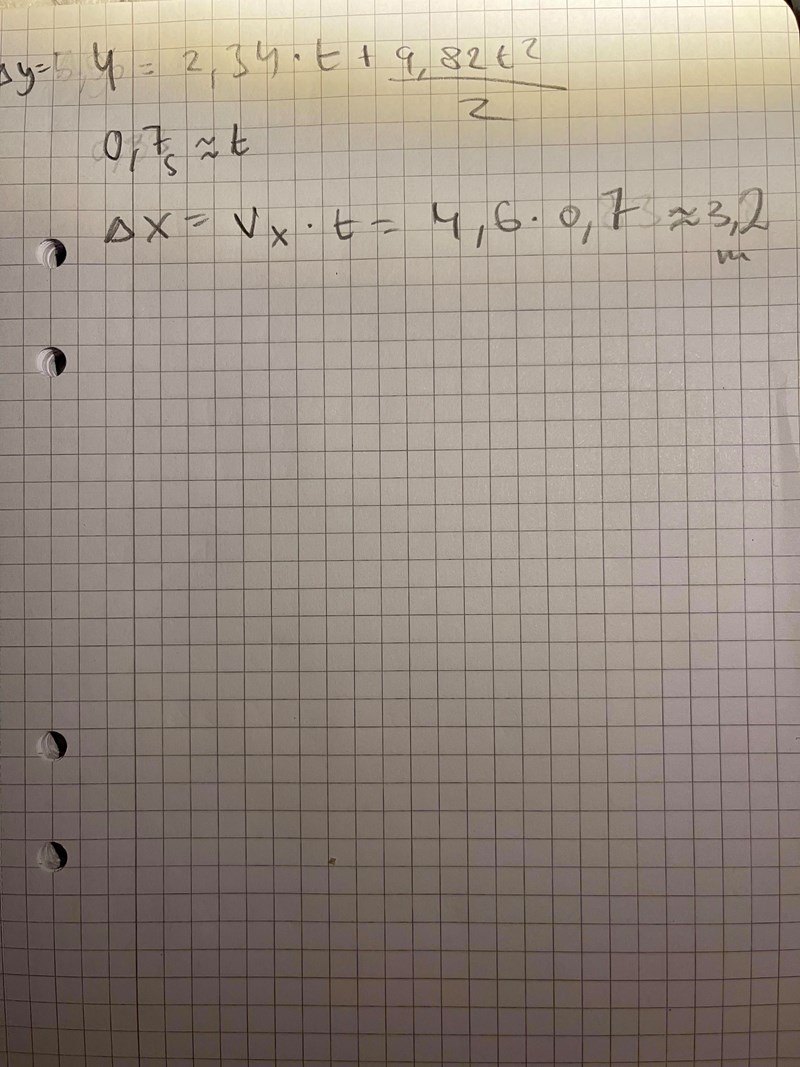 Δy = 4 = 2,34 · t + 9,82t² / 2
0,7s ≈ t
Δx = Vx · t = 4,6 · 0,7 ≈ 3,2 m